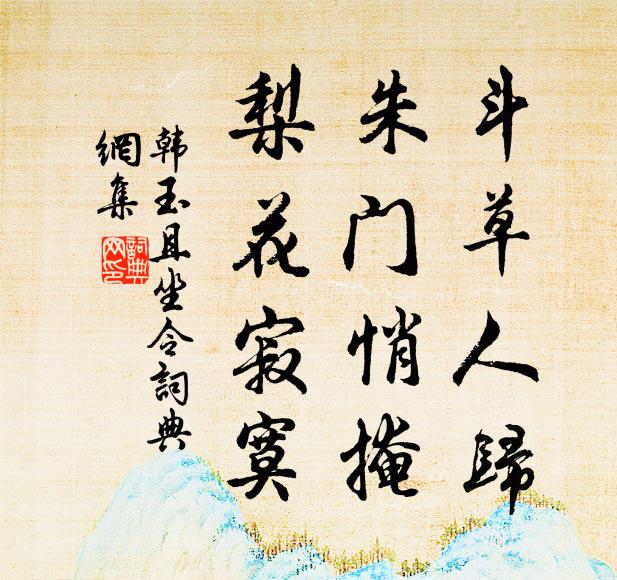 斗草人歸
朱門悄掩
梨花寂寞
韩玉且坐令詞典
網集
詞典
网印